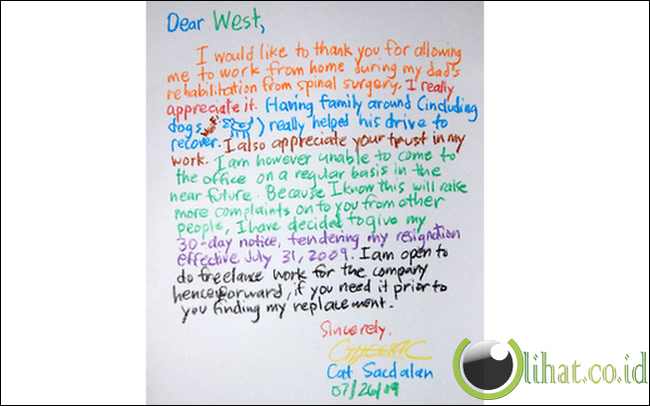 Dear West,
I would like to thank you for allowing
me to work from home during my dad's
rehabilitation from spinal surgery. I really
appreciate it. Having family around (including
dogs ) really helped his drive to
recover. I also appreciate your trust in my
work. I am however unable to come to
the office on a regular basis in the
near future. Because I know this will raise
more complaints on to you from other
people, I have decided to give my
30-day notice, tendering my resignation
effective July 31, 2009. I am open to
do freelance work for the company
henceforward, if you need it prior to
you finding my replacement.
Sincerely,
Cat Sacdalan
07/26/09
lihat.co.id